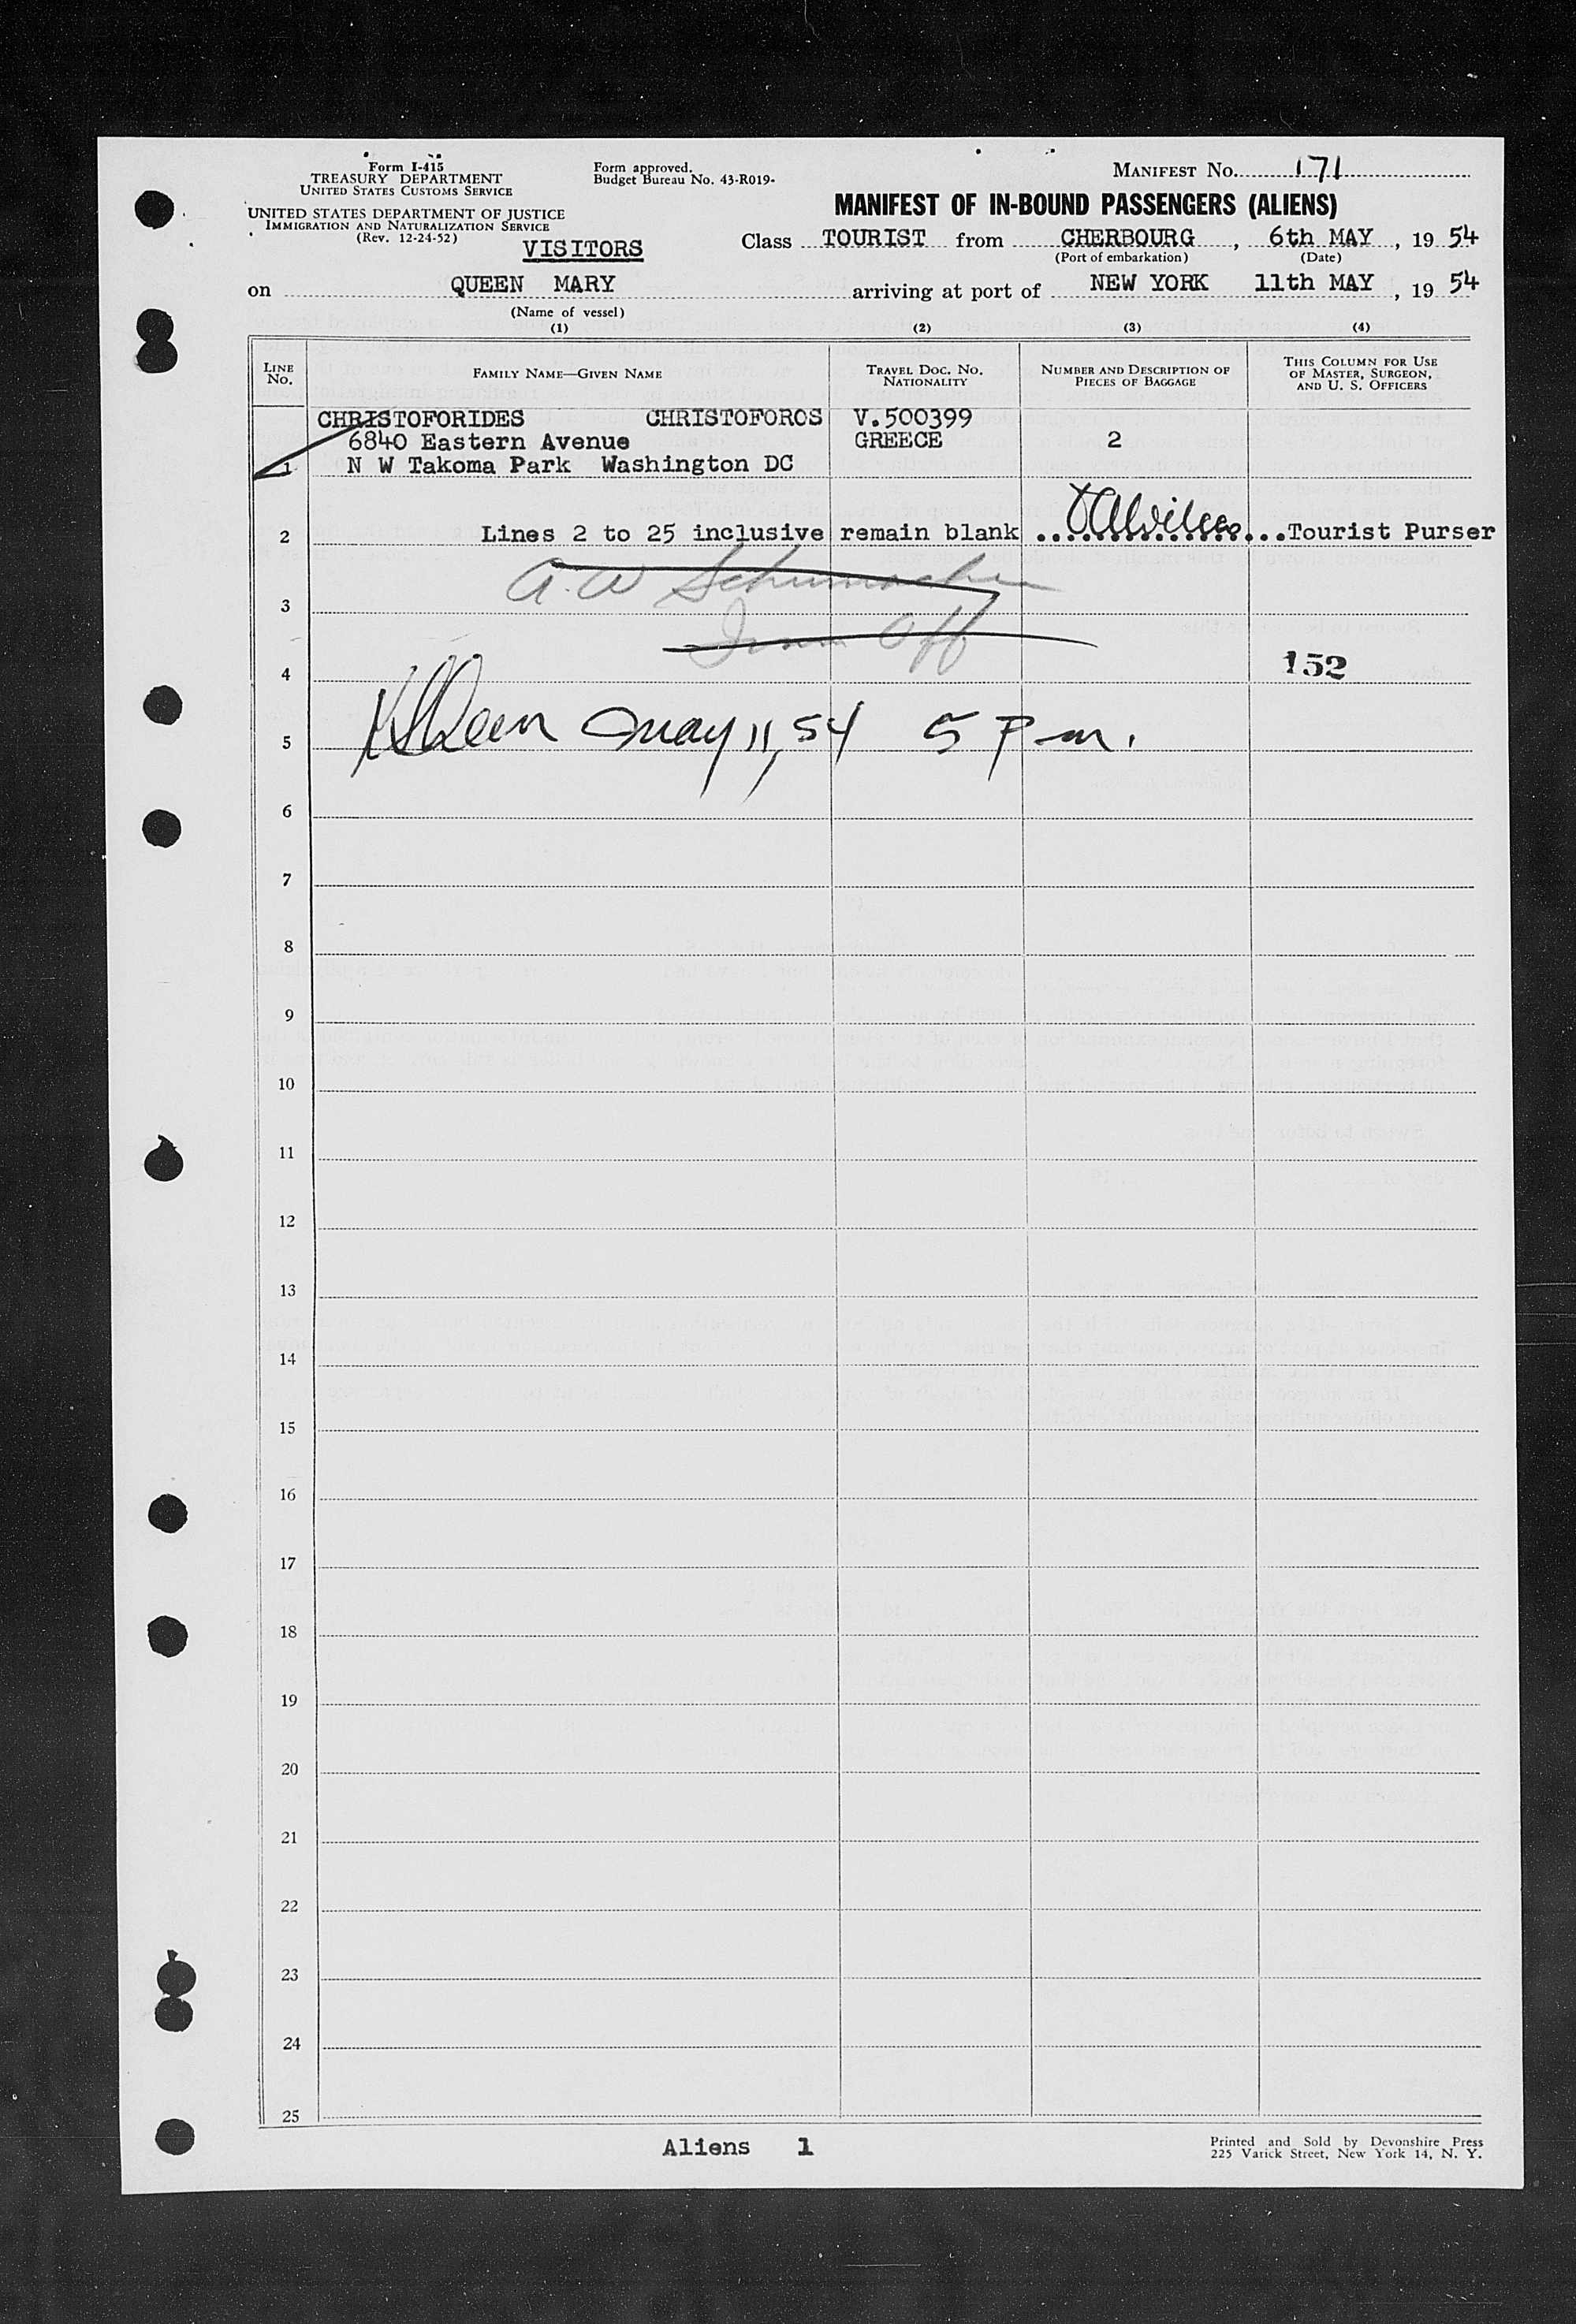 Form I-415
TREASURY DEPARTMENT
UNITED STATES CUSTOMS SERVICE
Form approved.
Budget Bureau No. 43-R019-
MANIFEST No. 171
UNITED STATES DEPARTMENT OF JUSTICE
IMMIGRATION AND NATURALIZATION SERVICE
(Rev. 12-24-52)
MANIFEST OF IN-BOUND PASSENGERS (ALIENS)
VISITORS
Class TOURIST from CHERBOURG, 6th MAY, 19 54
(Port of embarkation) (Date)
on QUEEN MARY arriving at port of NEW YORK 11th MAY, 19 54
(Name of vessel)
(1) (2) (3) (4)
LINE No. FAMILY NAME—GIVEN NAME TRAVEL DOC. No. NATIONALITY NUMBER AND DESCRIPTION OF PIECES OF BAGGAGE THIS COLUMN FOR USE OF MASTER, SURGEON, AND U. S. OFFICERS
CHRISTOFORIDES CHRISTOFOROS V.500399
6840 Eastern Avenue GREECE 2
1 N W Takoma Park Washington DC
2 Lines 2 to 25 inclusive remain blank ...Tourist Purser
A. W Schumacher
3
Imm Off
4 152
5 May 11, 54 5 P.m.
6
7
8
9
10
11
12
13
14
15
16
17
18
19
20
21
22
23
24
25
Aliens 1
Printed and Sold by Devonshire Press
225 Varick Street, New York 14, N. Y.